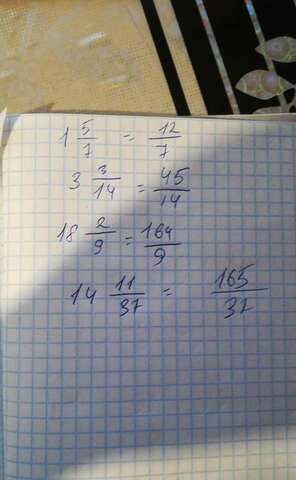 1 5/7 = 12/7
3 3/14 = 45/14
18 2/9 = 164/9
14 11/37 = 165/37